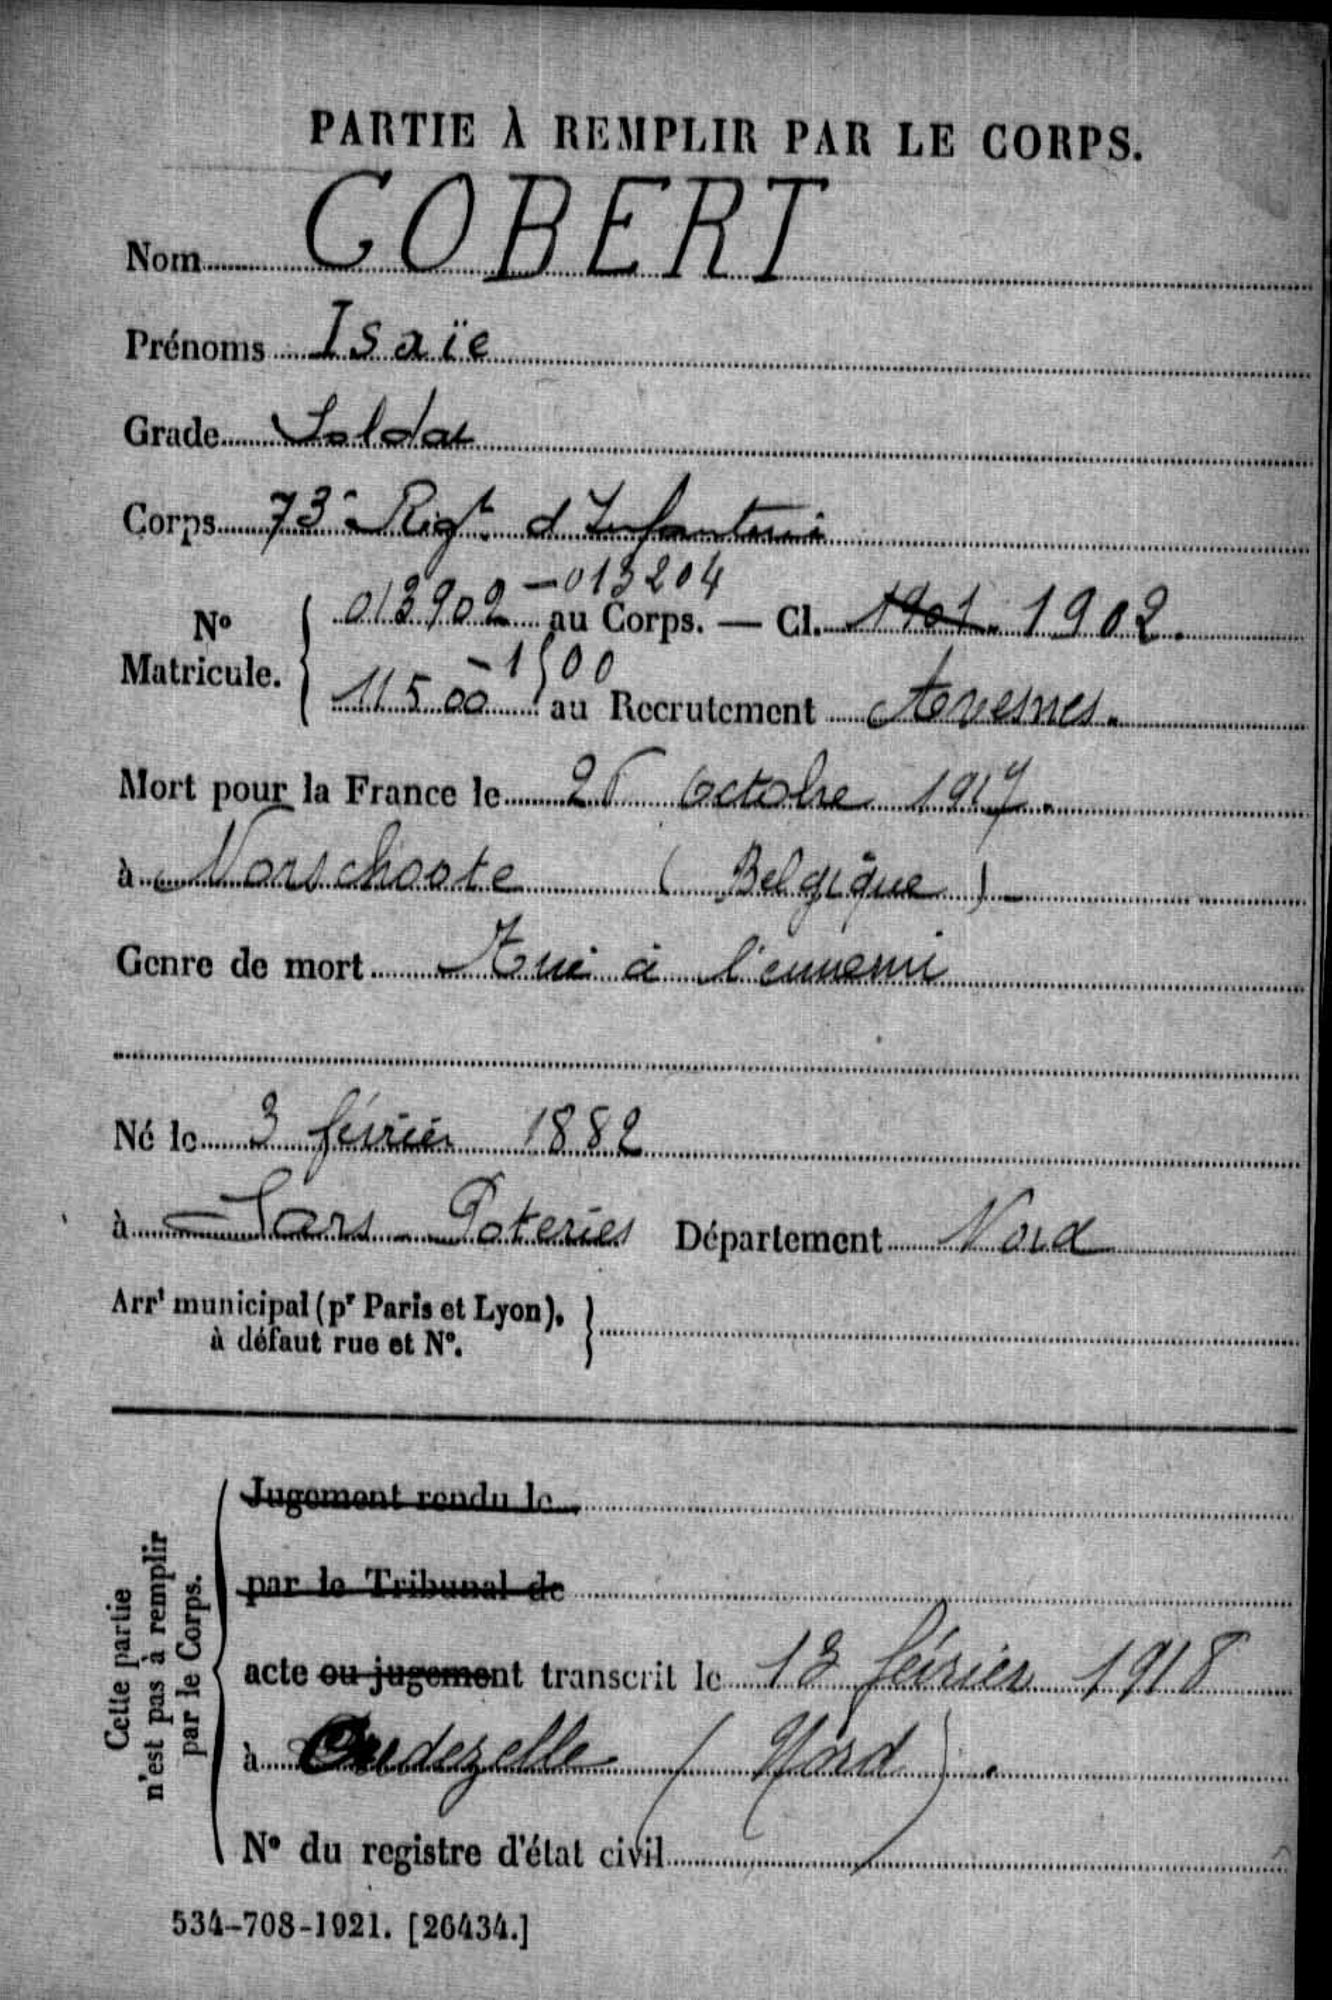 PARTIE À REMPLIR PAR LE CORPS.
Nom GOBERT
Prénoms Isaïe
Grade Soldat
Corps 73e Rigt d'Infanterie
- 013204
013902 au Corps. — Cl. 1901. 1902.
N°
Matricule.
- 1500
11500 au Recrutement Avesnes.
Mort pour la France le 26 Octobre 1917.
à Norschoote (Belgique)
Genre de mort Tué à l'ennemi
Né le 3 février 1882
à Sars-Poteries Département Nord
Arrt municipal (pr Paris et Lyon),
à défaut rue et N°.
Cette partie
n'est pas à remplir
par le Corps.
Jugement rendu le
par le Tribunal de
acte ou jugement transcrit le 13 février 1918
à Oudezelle (Nord).
N° du registre d'état civil
534-708-1921. [26434.]